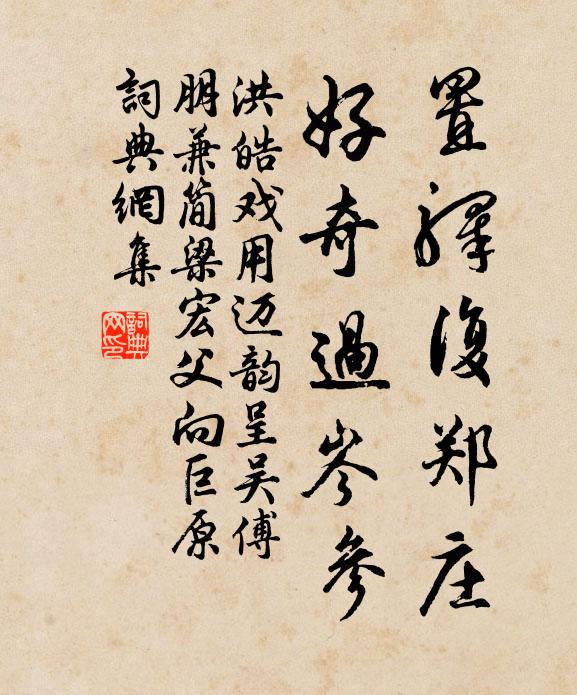 置驛復郑庄
好奇過岑參
洪皓戏用迈韵呈吴傅
朋兼简梁宏父向巨原
詞典網集
詞典网印